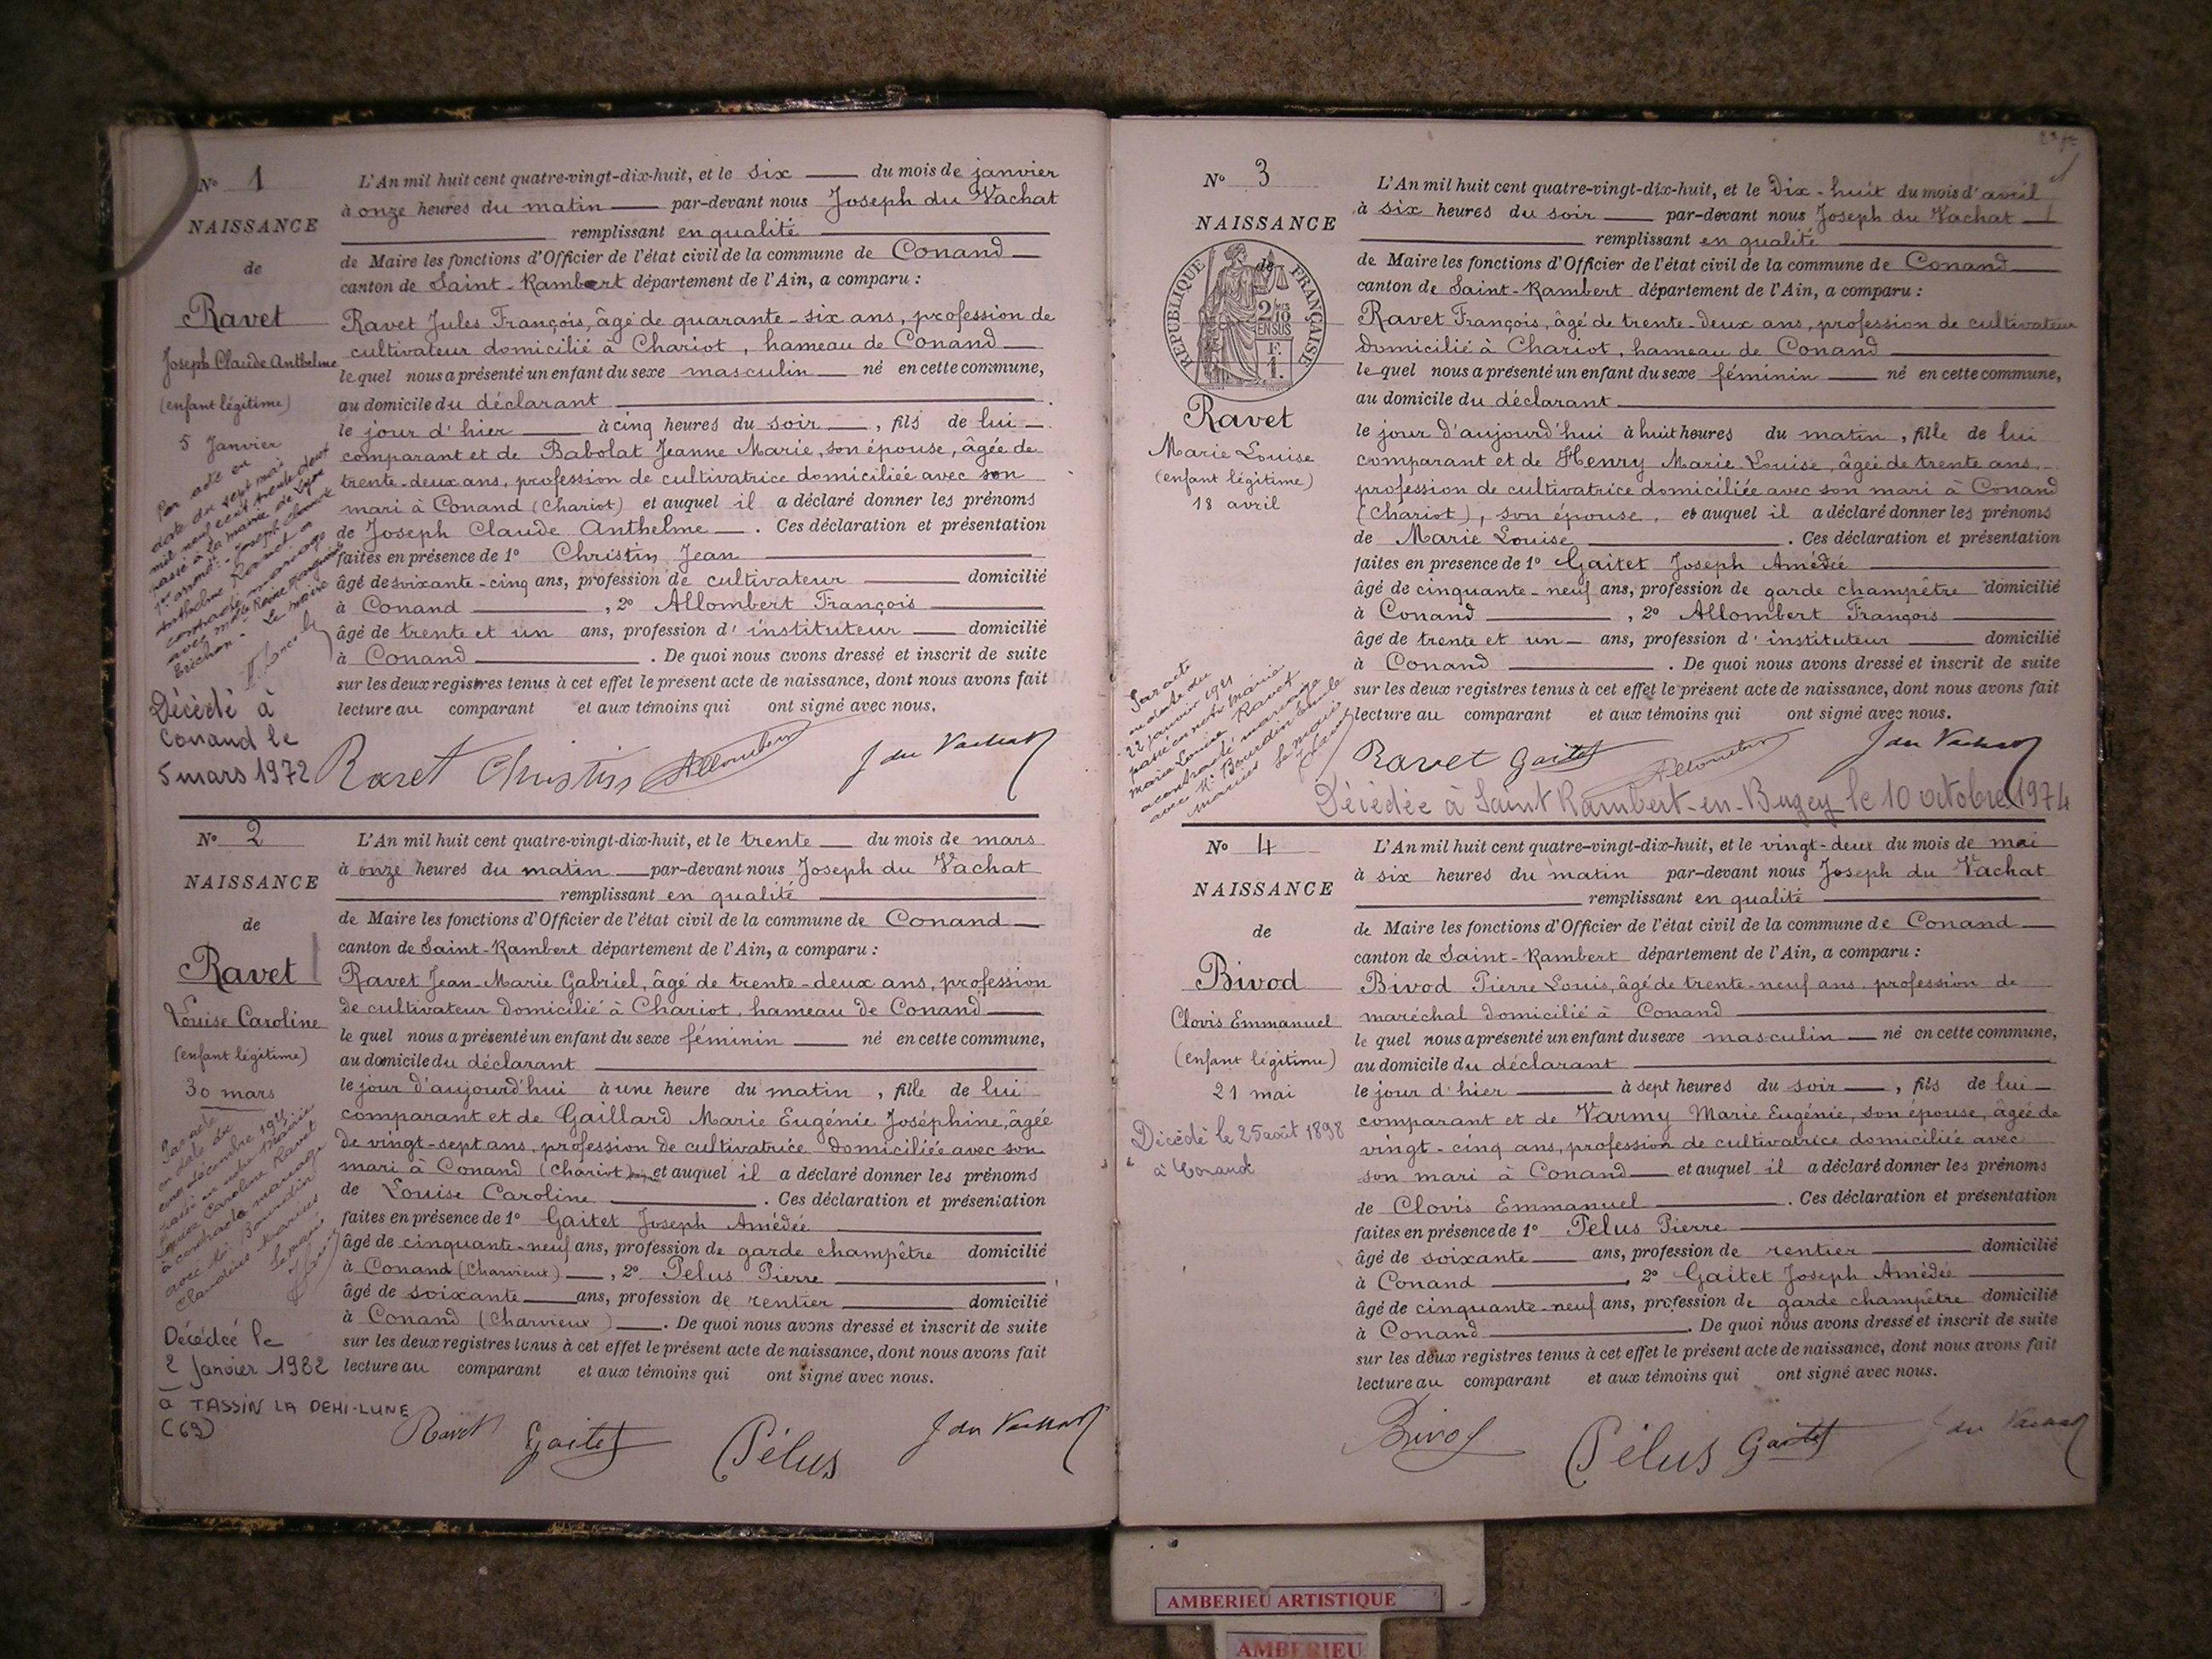 N° 1
NAISSANCE
de
Ravet
Joseph Claude Anthelme
(enfant légitime)
5 Janvier
Par acte en
date du sept mai
mil neuf cent trente deux
passé à la mairie de Lyon
1er arrondt Joseph Claude
Anthelme Ravet a
contracté mariage
avec
Le Maire
Décédé à
Conand le
5 mars 1972
L'An mil huit cent quatre-vingt-dix-huit, et le six du mois de janvier
à onze heures du matin par-devant nous Joseph du Vachat
remplissant en qualité
de Maire les fonctions d'Officier de l'état civil de la commune de Conand
canton de Saint-Rambert département de l'Ain, a comparu :
Ravet Jules François, âgé de quarante-six ans, profession de
cultivateur domicilié à Chariot, hameau de Conand
le quel nous a présenté un enfant du sexe masculin né en cette commune,
au domicile du déclarant
le jour d'hier à cinq heures du soir, fils de lui
comparant et de Babolat Jeanne Marie, son épouse, âgée de
trente-deux ans, profession de cultivatrice domiciliée avec son
mari à Conand (Chariot) et auquel il a déclaré donner les prénoms
de Joseph Claude Anthelme. Ces déclaration et présentation
faites en présence de 1° Christin Jean
âgé de soixante-cinq ans, profession de cultivateur domicilié
à Conand, 2° Allombert François
âgé de trente et un ans, profession d'instituteur domicilié
à Conand. De quoi nous avons dressé et inscrit de suite
sur les deux registres tenus à cet effet le présent acte de naissance, dont nous avons fait
lecture au comparant et aux témoins qui ont signé avec nous.
Ravet Christin Allombert J du Vachat
N° 2
NAISSANCE
de
Ravet
Louise Caroline
(enfant légitime)
30 mars
Par acte
en date du
décembre
passé en notre Mairie
Louise Caroline Ravet
a contracté mariage
avec Mr Bourdin
Claudius Marius
Le maire
Décédée le
2 Janvier 1982
à TASSIN LA DEMI-LUNE
(69)
L'An mil huit cent quatre-vingt-dix-huit, et le trente du mois de mars
à onze heures du matin par-devant nous Joseph du Vachat
remplissant en qualité
de Maire les fonctions d'Officier de l'état civil de la commune de Conand
canton de Saint-Rambert département de l'Ain, a comparu :
Ravet Jean-Marie Gabriel, âgé de trente-deux ans, profession
de cultivateur domicilié à Chariot, hameau de Conand
le quel nous a présenté un enfant du sexe féminin né en cette commune,
au domicile du déclarant
le jour d'aujourd'hui à une heure du matin, fille de lui
comparant et de Gaillard Marie Eugénie Joséphine, âgée
de vingt-sept ans, profession de cultivatrice domiciliée avec son
mari à Conand (Chariot) et auquel il a déclaré donner les prénoms
de Louise Caroline. Ces déclaration et présentation
faites en présence de 1° Gaitet Joseph Amédée
âgé de cinquante-neuf ans, profession de garde champêtre domicilié
à Conand (Charvieux), 2° Pelus Pierre
âgé de soixante ans, profession de rentier domicilié
à Conand (Charvieux). De quoi nous avons dressé et inscrit de suite
sur les deux registres tenus à cet effet le présent acte de naissance, dont nous avons fait
lecture au comparant et aux témoins qui ont signé avec nous.
Ravet Gaitet Pélus J du Vachat
N° 3
NAISSANCE
de
REPUBLIQUE FRANÇAISE
2/10
EN SUS
F.
1.
Ravet
Marie Louise
(enfant légitime)
18 avril
Par acte
en date du
22 janvier 1921
passé en notre mairie
Marie Louise Ravet
a contracté mariage
avec Mr Bourdin Emile
Marius Le maire
L'An mil huit cent quatre-vingt-dix-huit, et le dix-huit du mois d'avril
à six heures du soir par-devant nous Joseph du Vachat
remplissant en qualité
de Maire les fonctions d'Officier de l'état civil de la commune de Conand
canton de Saint-Rambert département de l'Ain, a comparu :
Ravet François, âgé de trente-deux ans, profession de cultivateur
domicilié à Chariot, hameau de Conand
le quel nous a présenté un enfant du sexe féminin né en cette commune,
au domicile du déclarant
le jour d'aujourd'hui à huit heures du matin, fille de lui
comparant et de Henry Marie-Louise, âgée de trente ans,
profession de cultivatrice domiciliée avec son mari à Conand
(Chariot), son épouse, et auquel il a déclaré donner les prénoms
de Marie Louise. Ces déclaration et présentation
faites en présence de 1° Gaitet Joseph Amédée
âgé de cinquante-neuf ans, profession de garde champêtre domicilié
à Conand, 2° Allombert François
âgé de trente et un ans, profession d'instituteur domicilié
à Conand. De quoi nous avons dressé et inscrit de suite
sur les deux registres tenus à cet effet le présent acte de naissance, dont nous avons fait
lecture au comparant et aux témoins qui ont signé avec nous.
Ravet Gaitet Allombert J du Vachat
Décédée à Saint Rambert-en-Bugey le 10 octobre 1974
N° 4
NAISSANCE
de
Bivod
Clovis Emmanuel
(enfant légitime)
21 mai
Décédé le 25 août 1898
à Conand
L'An mil huit cent quatre-vingt-dix-huit, et le vingt-deux du mois de mai
à six heures du matin par-devant nous Joseph du Vachat
remplissant en qualité
de Maire les fonctions d'Officier de l'état civil de la commune de Conand
canton de Saint-Rambert département de l'Ain, a comparu :
Bivod Pierre Louis, âgé de trente-neuf ans, profession de
maréchal domicilié à Conand
le quel nous a présenté un enfant du sexe masculin né en cette commune,
au domicile du déclarant
le jour d'hier à sept heures du soir, fils de lui
comparant et de Varmy Marie Eugénie, son épouse, âgée de
vingt-cinq ans, profession de cultivatrice domiciliée avec
son mari à Conand et auquel il a déclaré donner les prénoms
de Clovis Emmanuel. Ces déclaration et présentation
faites en présence de 1° Pelus Pierre
âgé de soixante ans, profession de rentier domicilié
à Conand, 2° Gaitet Joseph Amédée
âgé de cinquante-neuf ans, profession de garde champêtre domicilié
à Conand. De quoi nous avons dressé et inscrit de suite
sur les deux registres tenus à cet effet le présent acte de naissance, dont nous avons fait
lecture au comparant et aux témoins qui ont signé avec nous.
Bivod Pélus Gaitet J du Vachat
AMBERIEU ARTISTIQUE
AMBERIEU